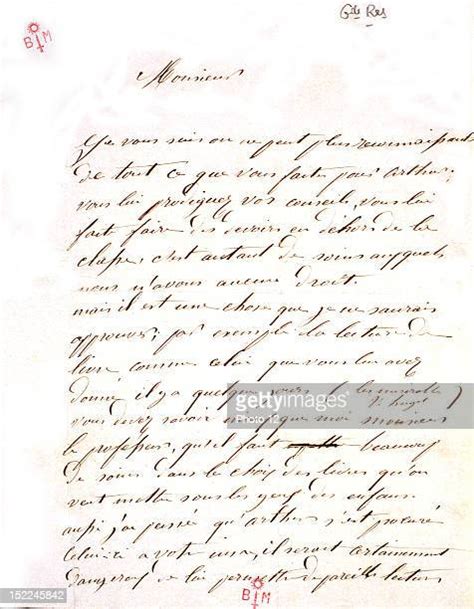 Gde Res
B M
Monsieur
Je vous suis on ne peut plus reconnaissante
de tout ce que vous faites pour arthur,
vous lui prodiguez vos conseils, vous lui
fait faire des devoirs en déhors de la
classe, c'est autant de soins auxquels
nous n'avons aucune droit.
mais il est une chose que je ne saurais
approuver, par exemple la lecture du
livre comme celui que vous lui avez
donné il y a quelques jours (les miserables
V. hugo)
vous devez savoir mieux que moi monsieur
le professeur, qu'il faut beaucoup
de soins dans le choix des livres qu'on
veut mettre sous les yeux des enfans.
aussi j'ai pensé qu'arthur s'est procuré
celui-ci a votre insu, il serait certainement
dangereux de lui permettre de pareilles lectures
gettyimages
Photo 12
B M
152245842